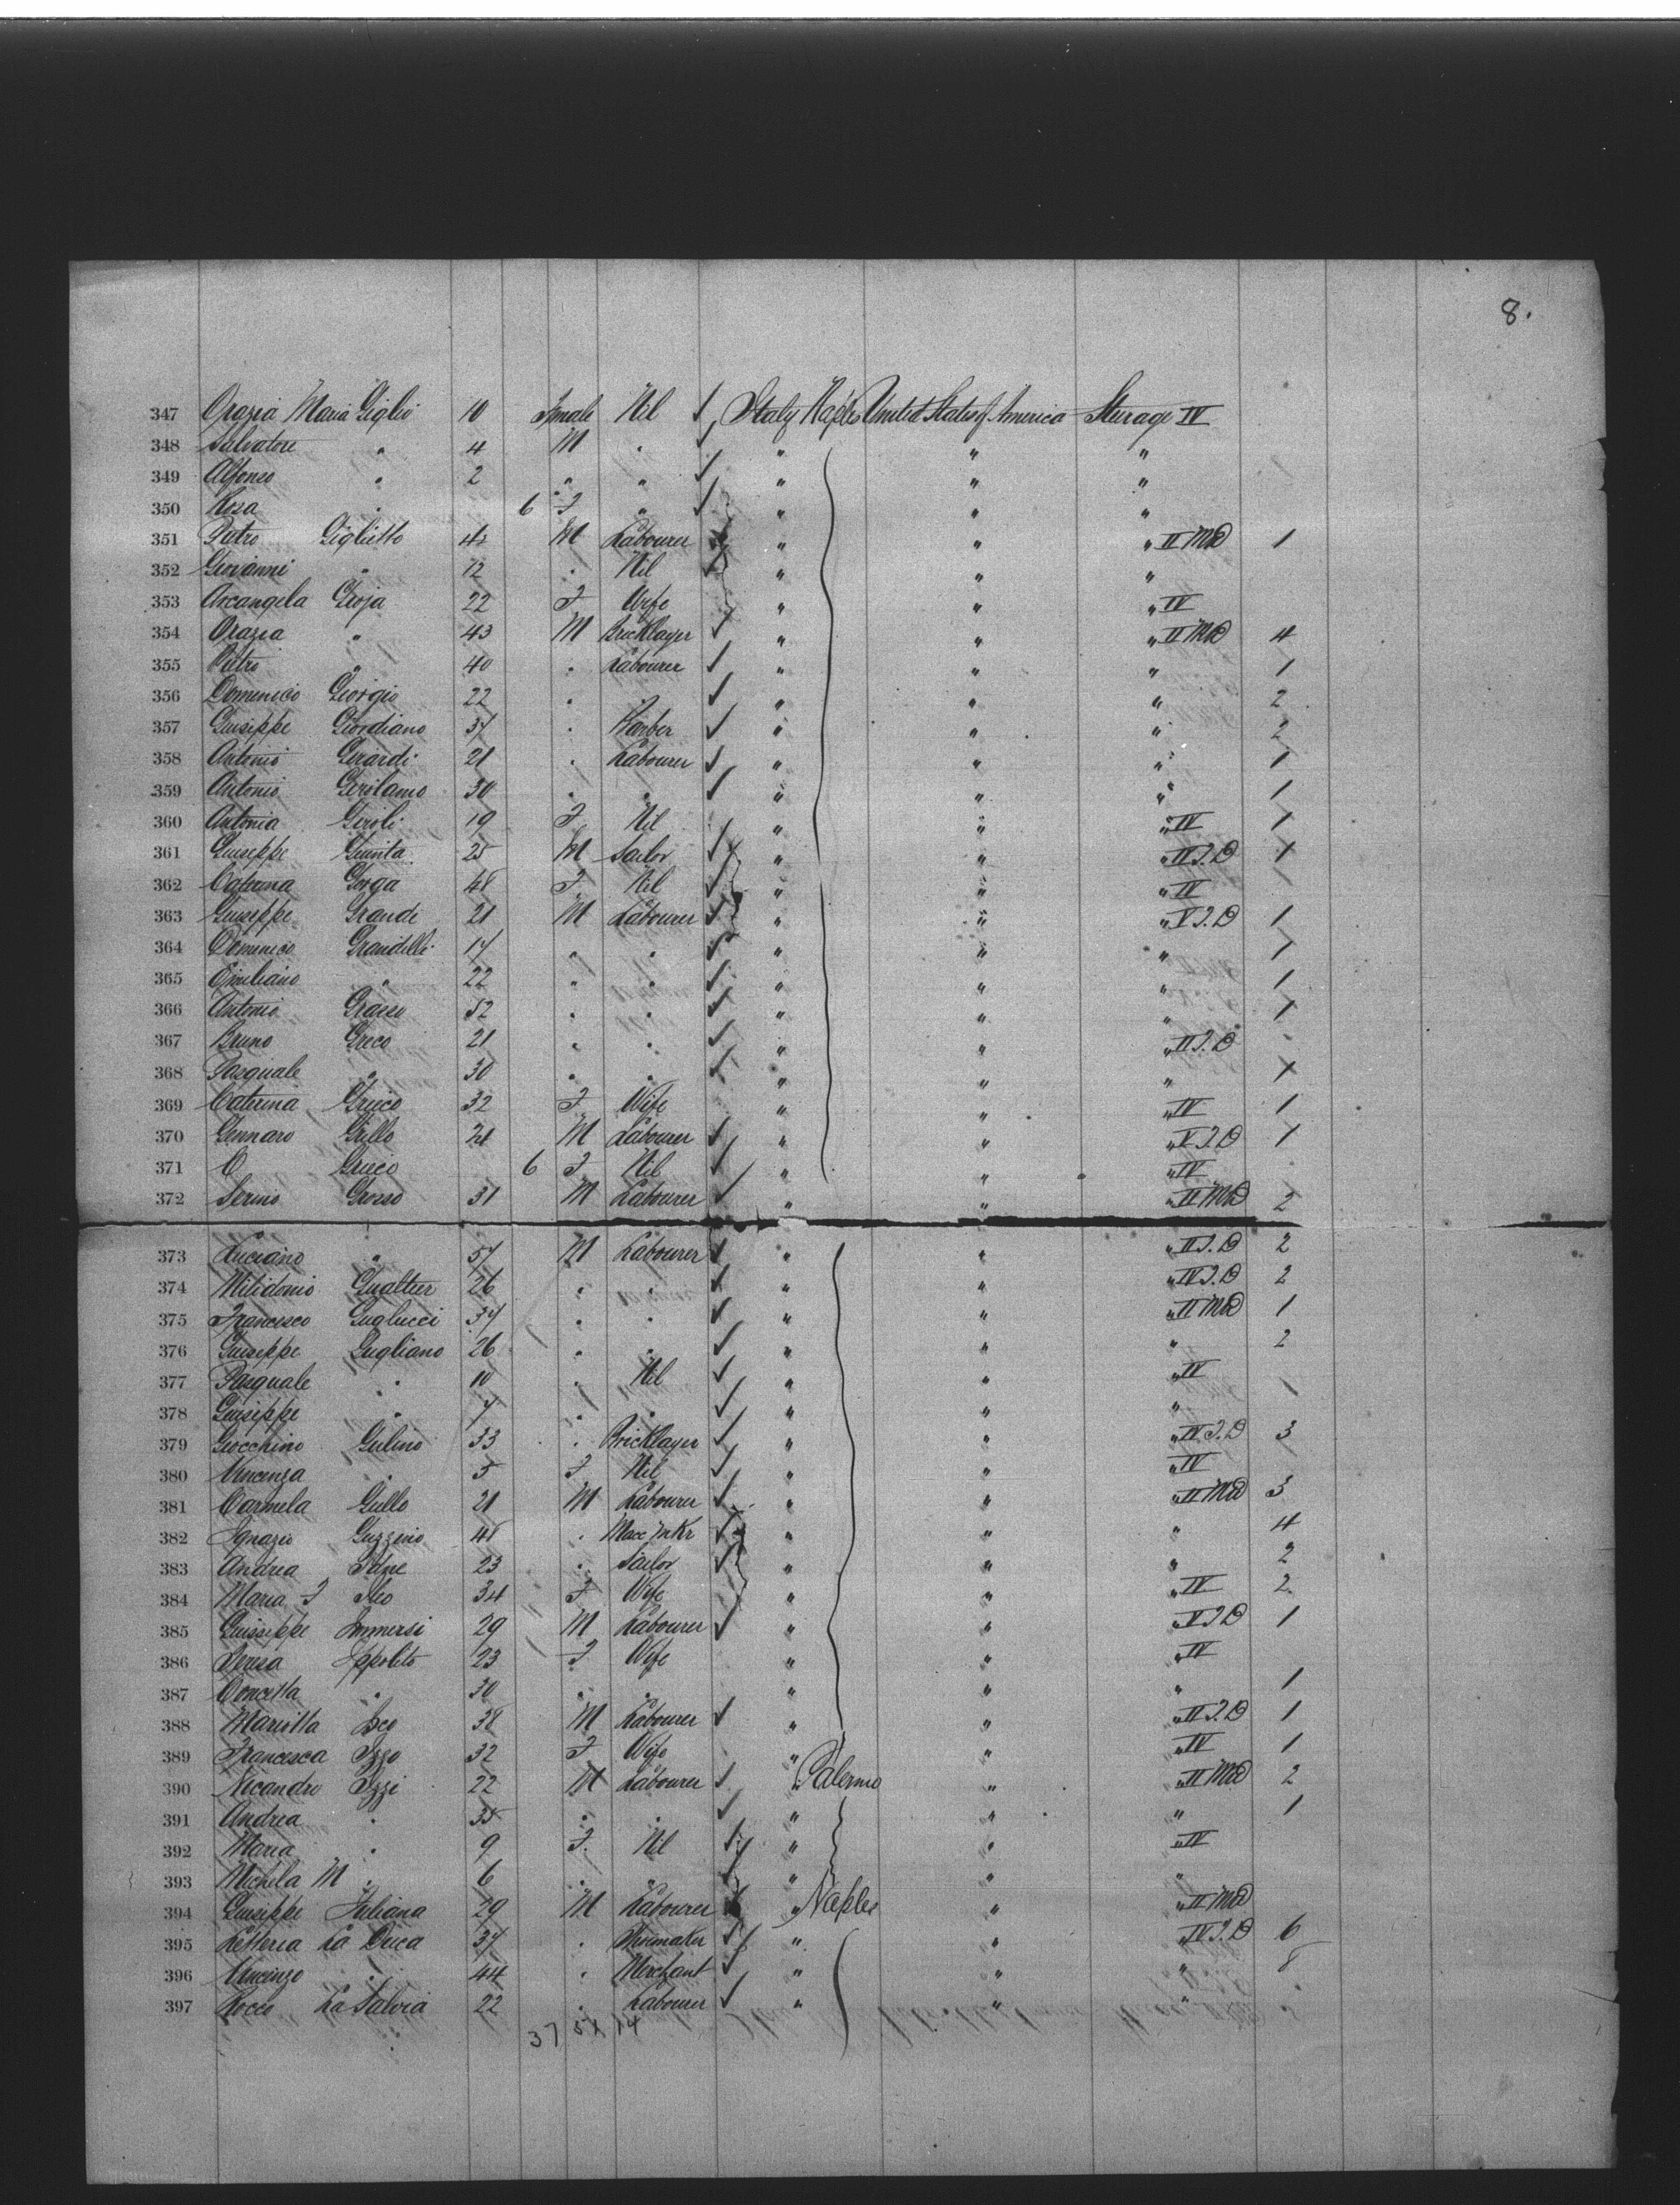 8.
347 Orazia Maria Giglio 10 Female Nil ✓ Italy Naples United States of America Sterage IV
348 Salvatore " 4 M " ✓ " " "
349 Alfonso " 2 " " ✓ " " "
350 Rosa " 6 F " ✓ " " "
351 Pietro Giglietto M Labourer " " " II Mid 1
352 Giovanni " 12 " Nil ✓ " " "
353 Arcangela Gioja 22 F Wife " " " IV
354 Orazia " 43 M Bricklayer ✓ " " " II Mid 4
355 Pietro " 40 " Labourer ✓ " " " 1
356 Domenico Giorgio 22 " " ✓ " " " 2
357 Giuseppe Giordiano 37 " Barber ✓ " " " 2
358 Antonio Girardi 21 " Labourer ✓ " " " 1
359 Antonio Girolamo 30 " " ✓ " " " 1
360 Antonia Giroli 19 F Nil " " " IV 1
361 Guiseppe Giunta 25 M Sailor ✓ " " " II F.D 1
362 Gorga 48 F Nil ✓ " " " IV
363 Guiseppe Grande 21 M Labourer ✓ " " " V F.D 1
364 Domenico Grandelli 17 " " ✓ " " " 1
365 Emiliano " 22 " " ✓ " " " 1
366 Antonio Grasso 52 " " ✓ " " " 1
367 Bruno Greco 21 " " ✓ " " " II F.D
368 Pasquale " 30 " " ✓ " " " 1
369 Caterina Grieco 32 F Wife " " " IV 1
370 Gennaro Grillo M Labourer ✓ " " " V F.D 1
371 C Grieco 6 F Nil ✓ " " " IV
372 Serino Grosso 31 M Labourer ✓ " " " II Mid 2
373 Luciano " 57 M Labourer ✓ " " " II F.D 2
374 Gualtier 26 " " ✓ " " " IV F.D 2
375 Francesco Guglucci 37 " " ✓ " " " II Mid 1
376 Guiseppe Gugliano 26 " " ✓ " " " 2
377 Pasquale " 10 " Nil ✓ " " " IV
378 Guiseppe " 7 " " ✓ " " "
379 Giocchino Gulino 33 " Bricklayer ✓ " " " IV F.D 3
380 Vincenza " 5 F Nil ✓ " " " IV
381 Carmela Gullo 21 M Labourer ✓ " " " II Mid 3
382 Ignazio Guzzino 48 " Macc Mkr ✓ " " " 4
383 Andrea 23 " Sailor ✓ " " " 2
384 Maria F Ileo 34 F Wife " " " IV 2
385 Guisseppe Immersi 29 M Labourer ✓ " " " V F.D 1
386 Teresa Ippolito 23 F Wife " " " IV
387 Concetta " 30 " " " " " 1
388 Mariotta Isco 38 M Labourer ✓ " " " II F.D 1
389 Francesca Izzo 32 F Wife " " " IV 1
390 Nicandro Izzi 22 M Labourer ✓ " Palermo " " II Mid 2
391 Andrea " 35 " " ✓ " " " 1
392 Maria " 9 F. Nil ✓ " " " IV
393 Michela M " 6 " " ✓ " " "
394 Guiseppe Iuliana 29 M Labourer " Naples " " II Mid
395 Letteria La Duca 37 " Shoemaker ✓ " " " IV F.D 6
396 Vincenzo " 44 " Merchant ✓ " " " 8
397 Rocco La Salvia 22 " Labourer ✓ " " "
37 51 14